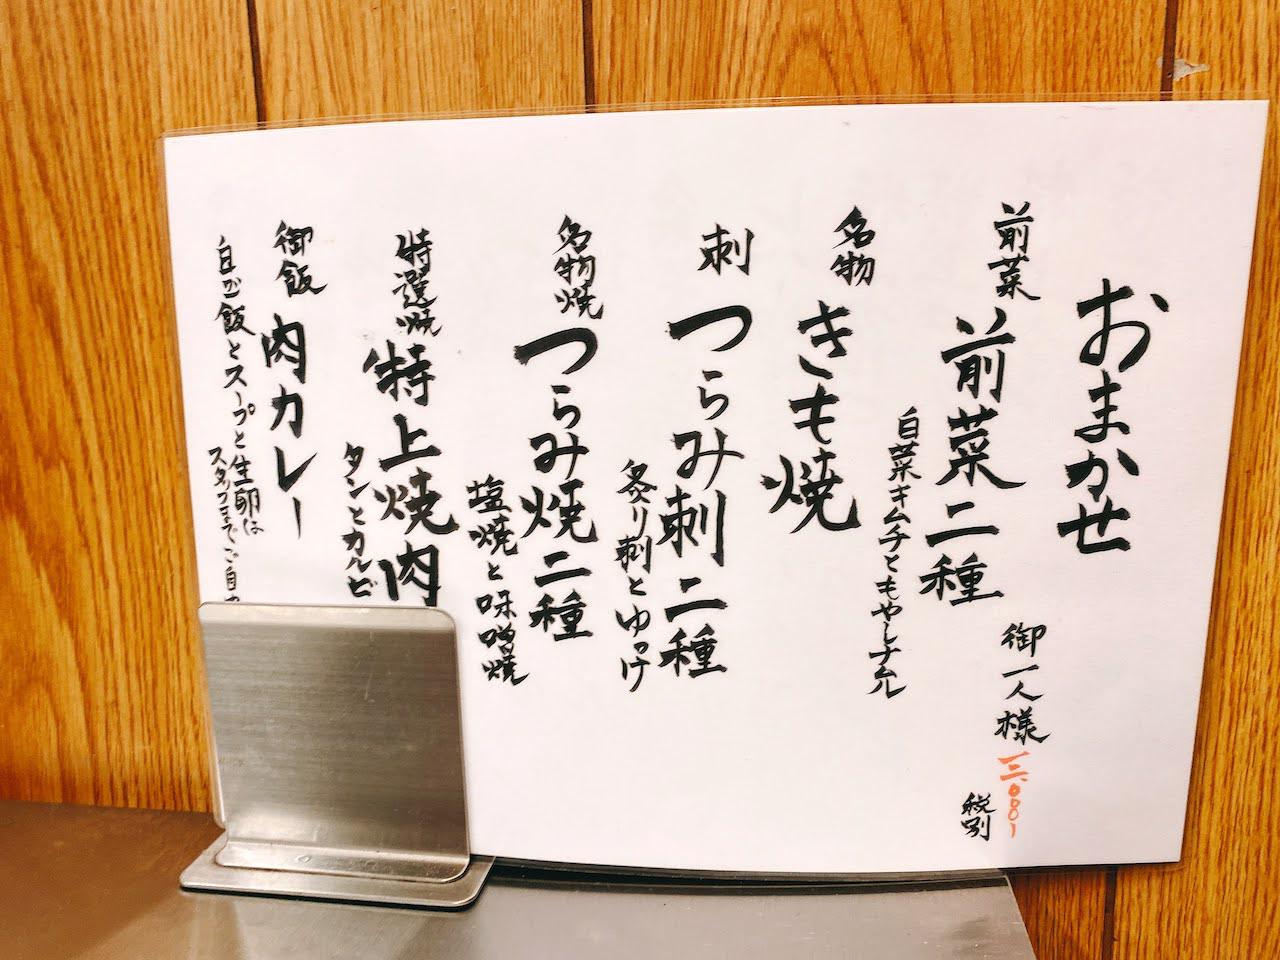 おまかせ
御一人様 一三、〇〇〇ー
税別
前菜 前菜二種
白菜キムチともやしナムル
名物 きも焼
刺 つらみ刺二種
炙り刺とゆっけ
名物焼 つらみ焼二種
塩焼と味噌焼
特選焼 特上焼肉
タンとカルビ
御飯 肉カレー
白ご飯とスープと生卵は
スタッフまでご自